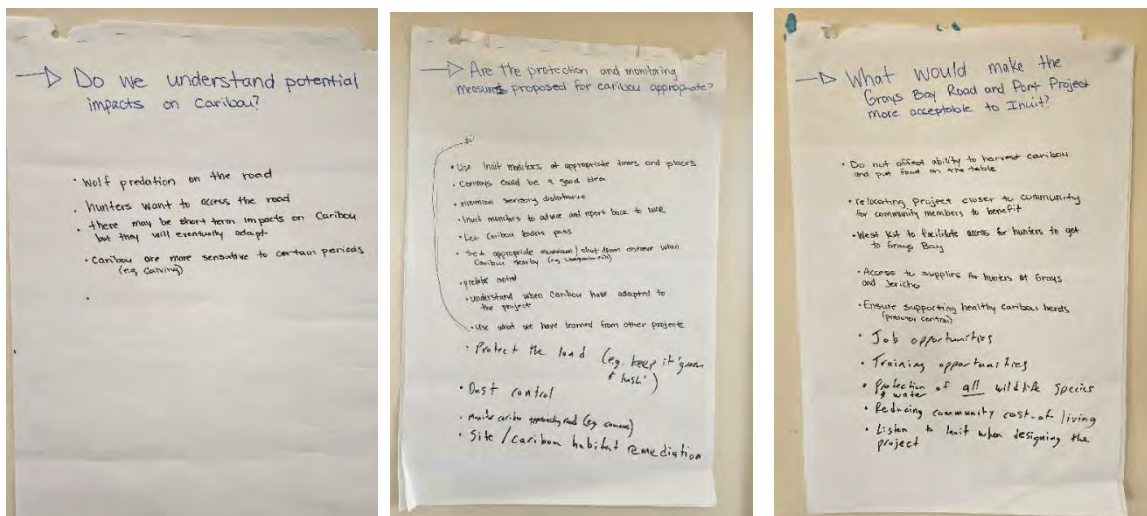 → Do we understand potential
impacts on Caribou?
· Wolf predation on the road
· hunters want to access the road
· there may be short term impacts on Caribou
but they will eventually adapt
· Caribou are more sensative to certain periods
(e.g. calving)
→ Are the protection and monitoring
measures proposed for caribou appropriate?
· Use Inuit monitors at appropriate times and places
· Convoys could be a good idea
· minimize sensory disturbance
· Inuit monitors to advise and report back to
· Let Caribou leaders pass
· Set appropriate shut down when
Caribou nearby (e.g.
·
· understand when Caribou have adapted to
the project
· Use what we have learned from other projects
· Protect the land (e.g. keep it 'green
& lush')
· Dust control
· Monitor caribou approaching road (e.g. cameras)
· Site / caribou habitat remediation
→ What would make the
Grays Bay Road and Port Project
more acceptable to Inuit?
· Do not affect ability to harvest caribou
and put food on the table
· relocating project closer to community
for community members to benefit
· West Kit to facilitate access for hunters to get
to Grays Bay
· Access to supplies for hunters at Grays
and Jericho
· Ensure supporting healthy caribou herds
(predator control)
· Job opportunities
· Training opportunities
· Protection of all wildlife species
& water
· Reducing community cost-of living
· Listen to Inuit when designing the
project